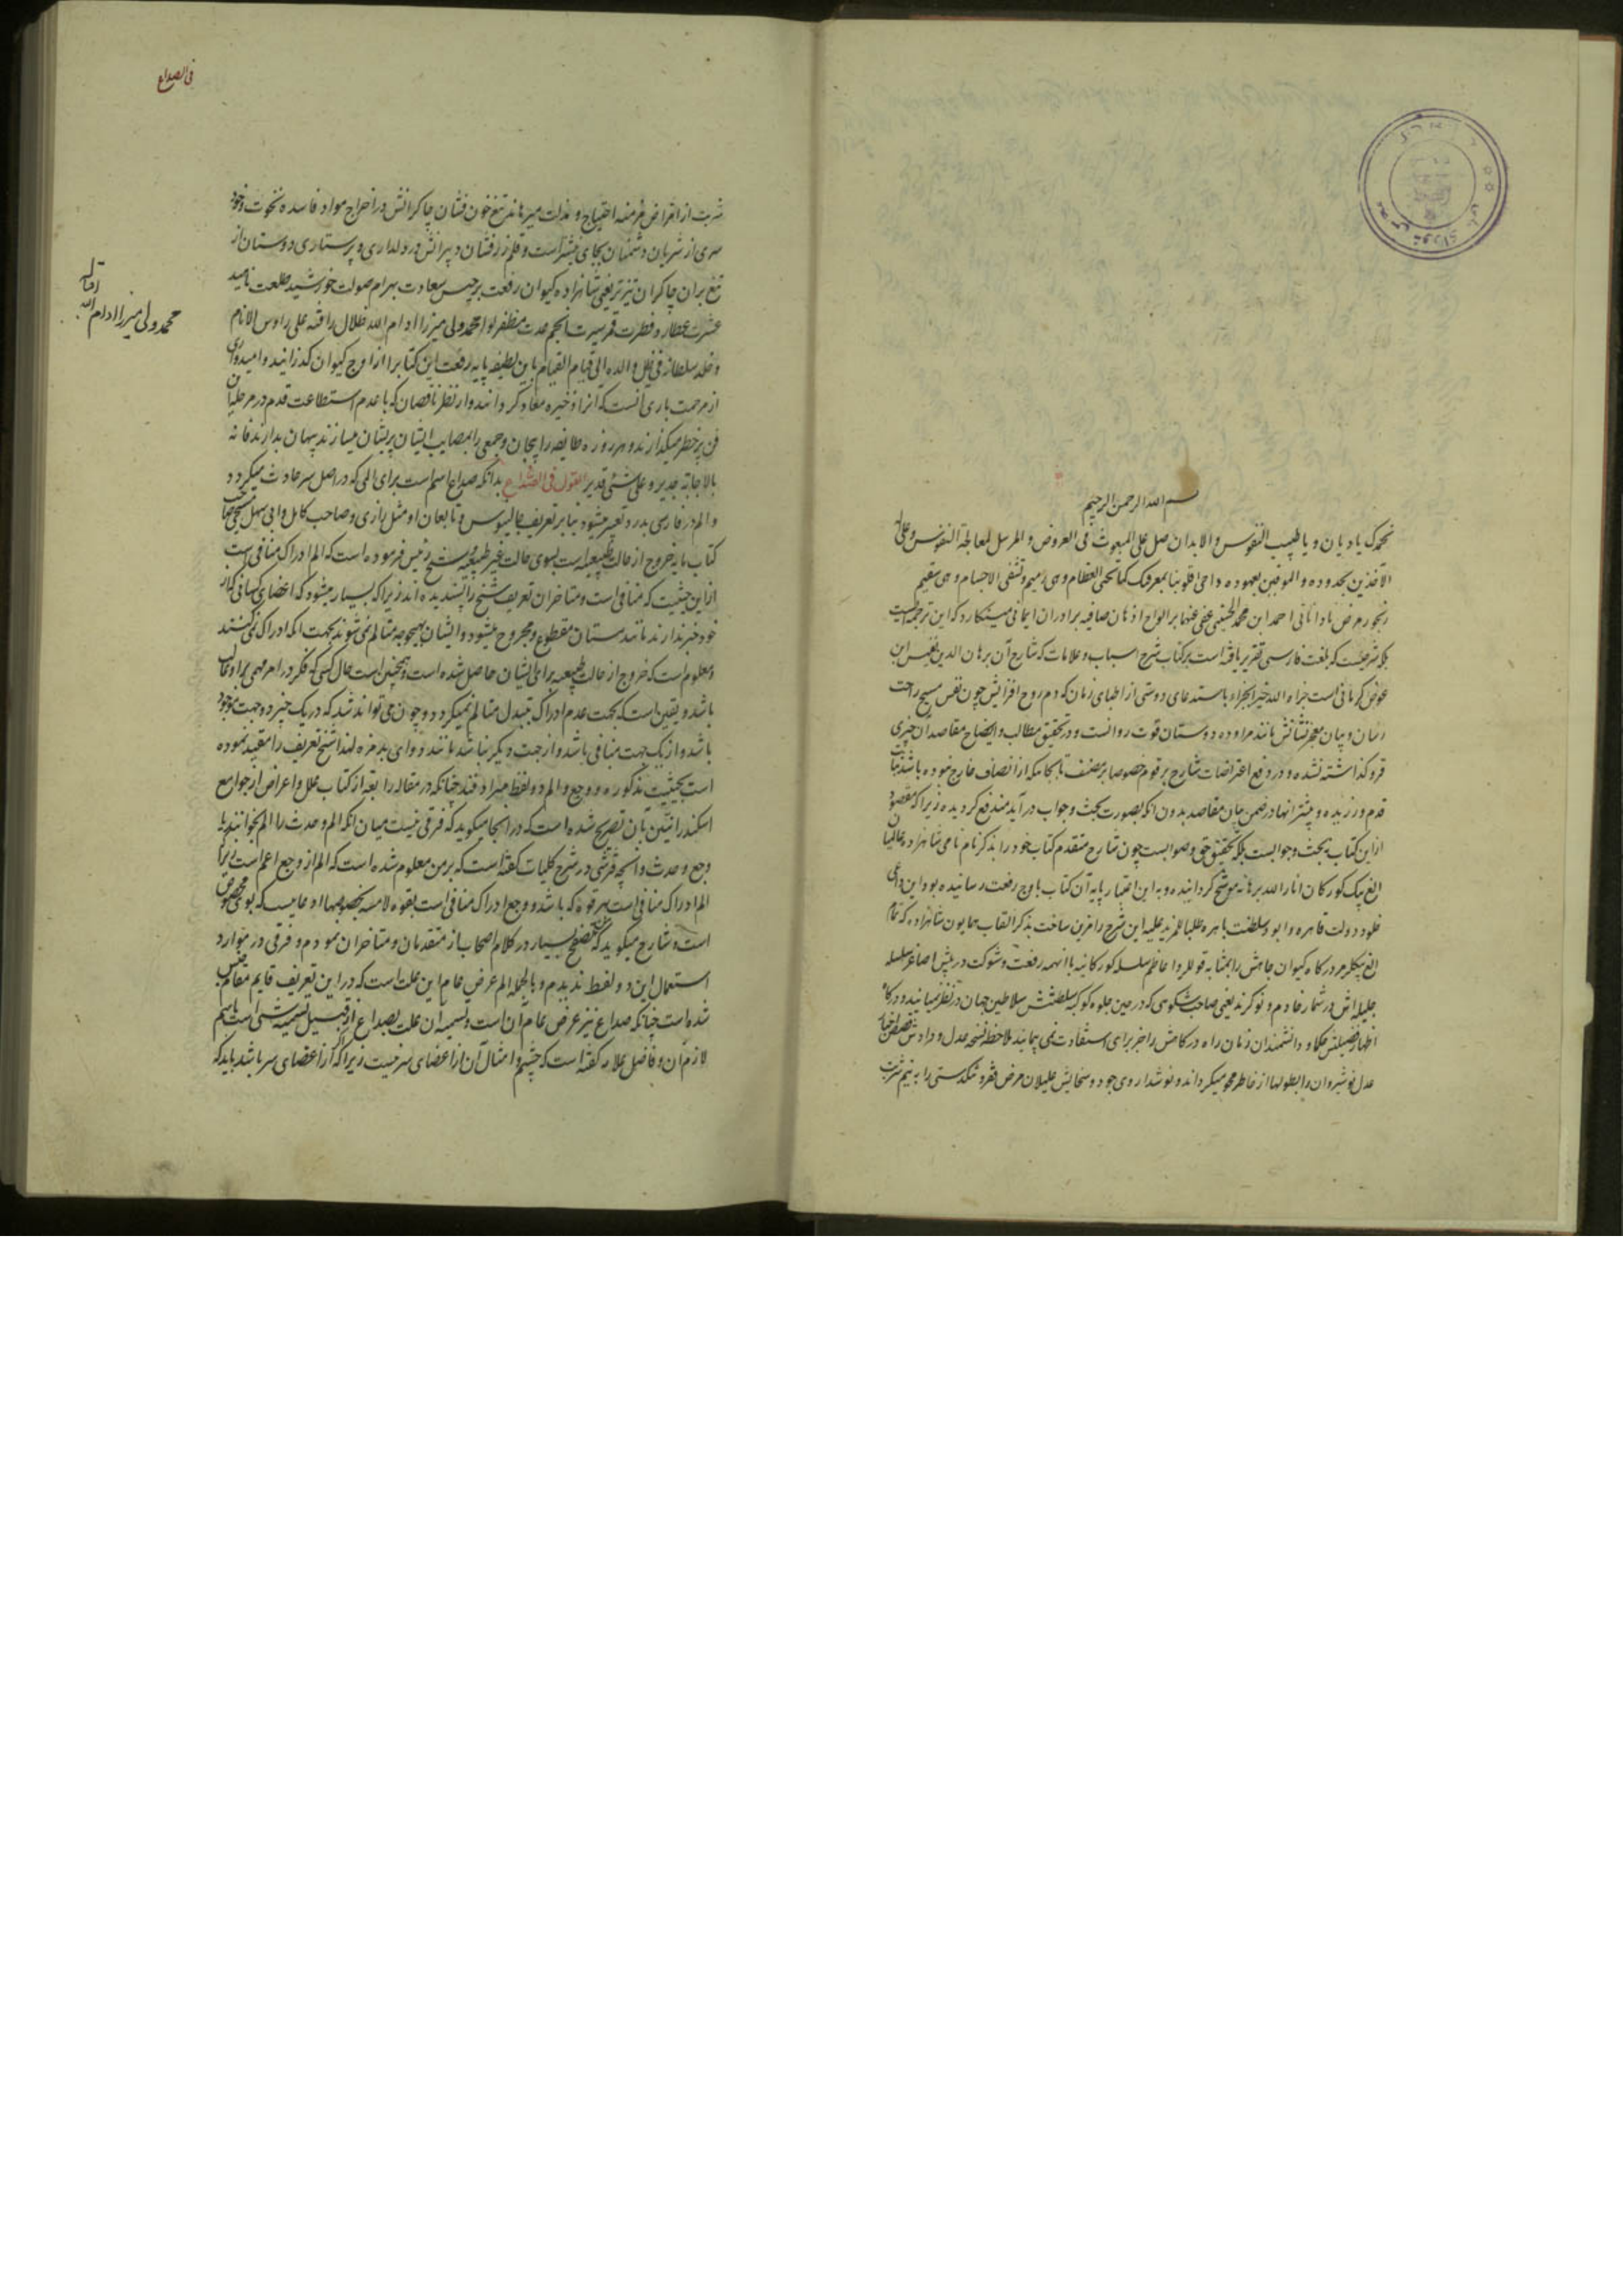 بسم الله الرحمن الرحیم
نحمدک یا دیان و یا طبیب النفوس والابدان صل علی المبعوث فی العروض والمرسل لمعالجة النفوس و علی
الآخذین بحدوده و الموفین بعهوده و احی قلوبنا بمعرفتک کما تحیی العظام و هی رمیم و تشفی الاجسام و هی سقیم
رنجور مرض نادانانی احمد ابن محمد الحسینی عفی عنهما بر الواح اذهان صافیه برادران ایمانی مینگارد که این ترجمه ایست
بلکه شرحیست که بلغت فارسی تقریر یافته است بر کتاب شرح اسباب و علامات که شارح آن برهان الدین نفیس ابن
عوض کرمانی است جزاه الله خیر الجزاء باستدعای دوستی از اطبای زمان که دم روح افزایش چون نفس مسیح راحت
رسان و بیان معجزنشانش مانند مراوده دوستان قوت روانست و در تحقیق مطالب و ایضاح مقاصد آن چیزی
فرو گذاشته نشده و در دفع اعتراضات شارح بر قوم خصوصا بر مصنف تا بجائیکه از انصاف خارج نبوده باشد
قدم ورزیده و بیشتر آنها در ضمن بیان مقاصد بدون آنکه بصورت بحث و جواب در آید مندفع گردیده زیرا که مقصود
ازاین کتاب نه بحث و جوابست بلکه تحقیق حق و صوابست چون شارح متقدم کتاب خود را بذکر نام نامی شاهزاده
الغ بیک کورکان انار الله برهانه موشح گردانیده و به این اعتبار پایه آن کتاب باوج رفعت رسانیده بود این داعی
خلود دولت قاهره و ابود سلطنت باهره طلبا للمزید علیه این شرح را مزین ساخت بذکر القاب همایون شاهزاده که تمام
الغ بیکلر در درگاه کیوان جاهش را بمثابه قوللر و اعاظم سلسله کورکانیه با انهمه رفعت و شوکت در پیش اصاغر سلسله
جلیله اش در شمار خادم و نوکرند یعنی صاحب شکوهی که در حین جلوه کوکبه سلطنتش سلاطین جهان در نظر
اظهار فضیلتش حکما و دانشمندان زمان راه درگاهش را جز برای استفادت نمی پیمایند ملاحظه نسخه عدل و دادش
عدل نوشیروان را بطولها از خاطر محو میگرداند و نوشداروی جود و سخایش علیلان مرض فقر و تنگدستی را به نیم شربت
فی الصداع
شربت از امراض مزمنه احتیاج و مذلت میرهاند تیغ خون فشان چاکرانش در اخراج مواد فاسده نخوت و خود
سری از شریان دشمنان بجای نیشتر است و قلم زرفشان دبیرانش در دلداری و پرستاری دوستان از
تیغ بران چاکران تیزتر یعنی شاهزاده کیوان رفعت برجیس سعادت بهرام صولت خورشید طلعت ناهید
عشرت عطارد فطرت قمر سیرت انجم عدت مظفر لوا محمد ولی میرزا ادام الله ظلال رافته علی رؤس الانام
و خلد سلطانه فی ظل والده الی قیام القیام باین لطیفه پایه رفعت این کتابرا از اوج کیوان گذرانید و امیدواری
از مرحمت باری آنست که آنرا ذخیره معاد گرداند و از نظر ناقصان که با عدم استطاعت قدم در مرحله این
فن پرخطر میگذارند و هر روزه طایفه را بیجان و جمعی را بمصایب ایشان پریشان میسازند پنهان بدارد فانه
بالاجابة جدیر و علی کل شئی قدیر القول فی الصداع بدانکه صداع اسم است برای المی که در اصل سر حادث میگردد
و الم در فارسی بدرد تعبیر میشود بنابر تعریف جالینوس و تابعان او مثل رازی و صاحب کامل و ابی سهل مسیحی صاحب
کتاب مایه خروج از حالت طبیعیه است بسوی حالت غیر طبیعیه و شیخ رئیس فرموده است که الم ادراک منافی است
از این حیثیت که منافی است و متاخران تعریف شیخ را پسندیده اند زیرا که بسیار میشود که اعضای کسانی که از
خود خبر ندارند مانند مستان مقطوع و مجروح میشود و ایشان بهیچوجه متالم نمی شوند بجهت آنکه ادراک نمی کنند
و معلوم است که خروج از حالت طبیعیه برای ایشان حاصل شده است و همچنین است حال کسی که فکر در امر مهمی بر او غالب
باشد و یقین است که بجهت عدم ادراک تبدل متالم نمیگردد و چون می تواند شد که در یک چیز دو جهت موجود
باشد و از یک جهت منافی باشد و از جهت دیگر نباشد مانند دوای بدمزه لهذا شیخ تعریف را مقید نموده
است بحیثیت مذکوره و وجع و الم دو لفظ مترادفند چنانکه در مقاله رابعه از کتاب علل و اعراض از جوامع
اسکندرانیین بآن تصریح شده است که در آنجا میگوید که فرقی نیست میان آنکه الم و حدث را الم بخوانند یا
وجع و حدث و آنچه قرشی در شرح کلیات گفته است که بر من معلوم شده است که الم از وجع اعم است زیرا که
الم ادراک منافی است بهر قوه که باشد و وجع ادراک منافی است بقوه لامسه بخصوصها ادعاییست که باو مخصوص
است و شارح میگوید که تصفح بسیار در کلام اصحاب از متقدمان و متاخران نمودم و فرقی در موارد
استعمال این دو لفظ ندیدم و بالجمله الم عرض عام این علت است که در این تعریف قایم مقام جنس
شده است چنانکه صداع نیز عرض عام آن است و تسمیه آن علت بصداع از قبیل تسمیه شئی است باسم
لازم آن و فاضل علامه گفته است که چشم و امثال آن از اعضای سر نیست زیرا که اگر از اعضای سر باشد باید که
اقاله
محمد ولی میرزا ادام الله